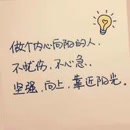 做个内心向阳的人,
不忧伤,不心急.
坚强,向上,靠近阳光.